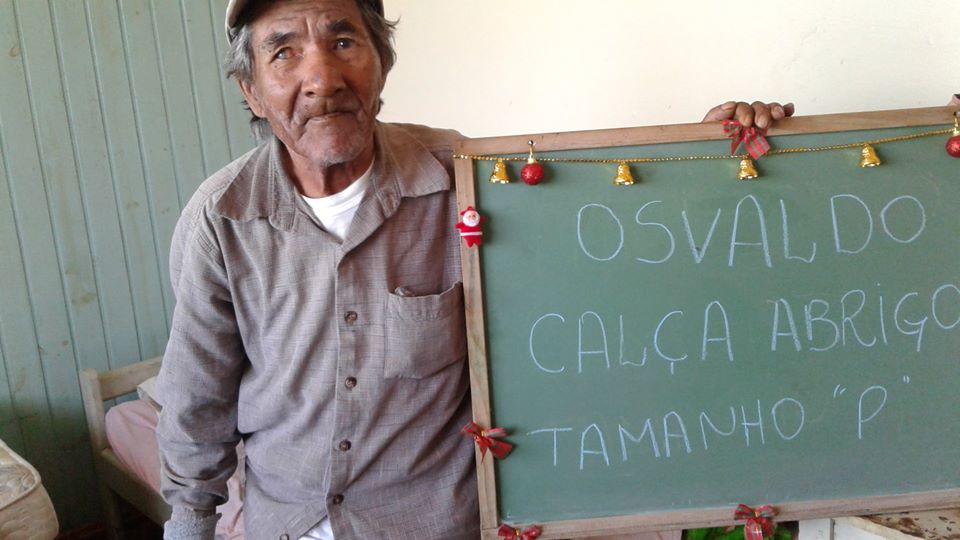 OSVALDO
CALÇA ABRIGO
TAMANHO "P"